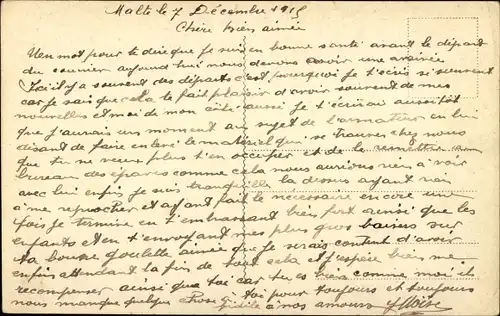 Malte le 7 Décembre 1915
Chère bien aimée
Un mot pour te dire que je suis en bonne santé avant le départ
du courrier aujourd'hui nous devons avoir une arrivée
J'ai il y a souvent des départs c'est pourquoi je t'écris si souvent
car je sais que cela te fait plaisir d'avoir souvent de mes
nouvelles et moi de mon côté aussi je t'écrirai aussitôt
que j'aurais un moment au sujet de l'armateur en lui
disant de faire enlevé le matériel qui se trouve chez nous
que tu ne veux plus t'en occuper et de le remettre au
bureau des épaves comme cela nous aurions rien à voir
avec lui enfin je suis tranquille la dessus ayant rien
à me reprocher et ayant fait le nécessaire encore une
fois je termine en t'embrassant bien fort ainsi que les
enfants et en t'envoyant mes plus gros baisers sur
ta bouche aimée que je serais content d'avoir
enfin attendant la fin de tout cela et j'espère bien me
recompenser ainsi que toi car tu es bien comme moi il
nous manque quelque chose à toi pour toujours et toujours
à nos amours